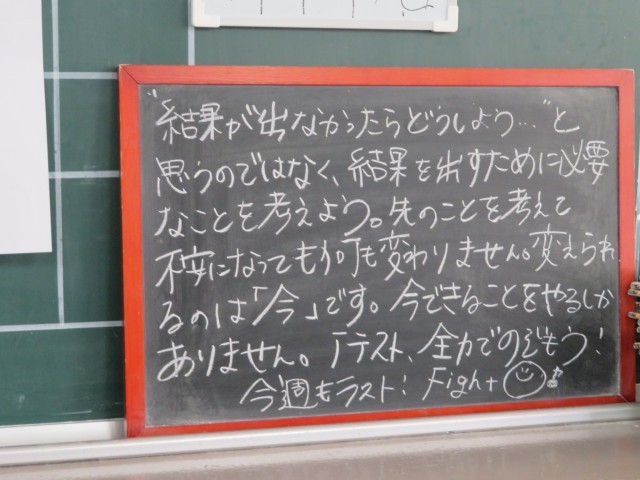 "結果が出なかったらどうしよう…"と
思うのではなく、結果を出すために必要
なことを考えよう。先のことを考えて
不安になっても何も変わりません。変えられ
るのは「今」です。今できることをやるしか
ありません。テスト、全力でのぞもう!
今週もラスト! Fight